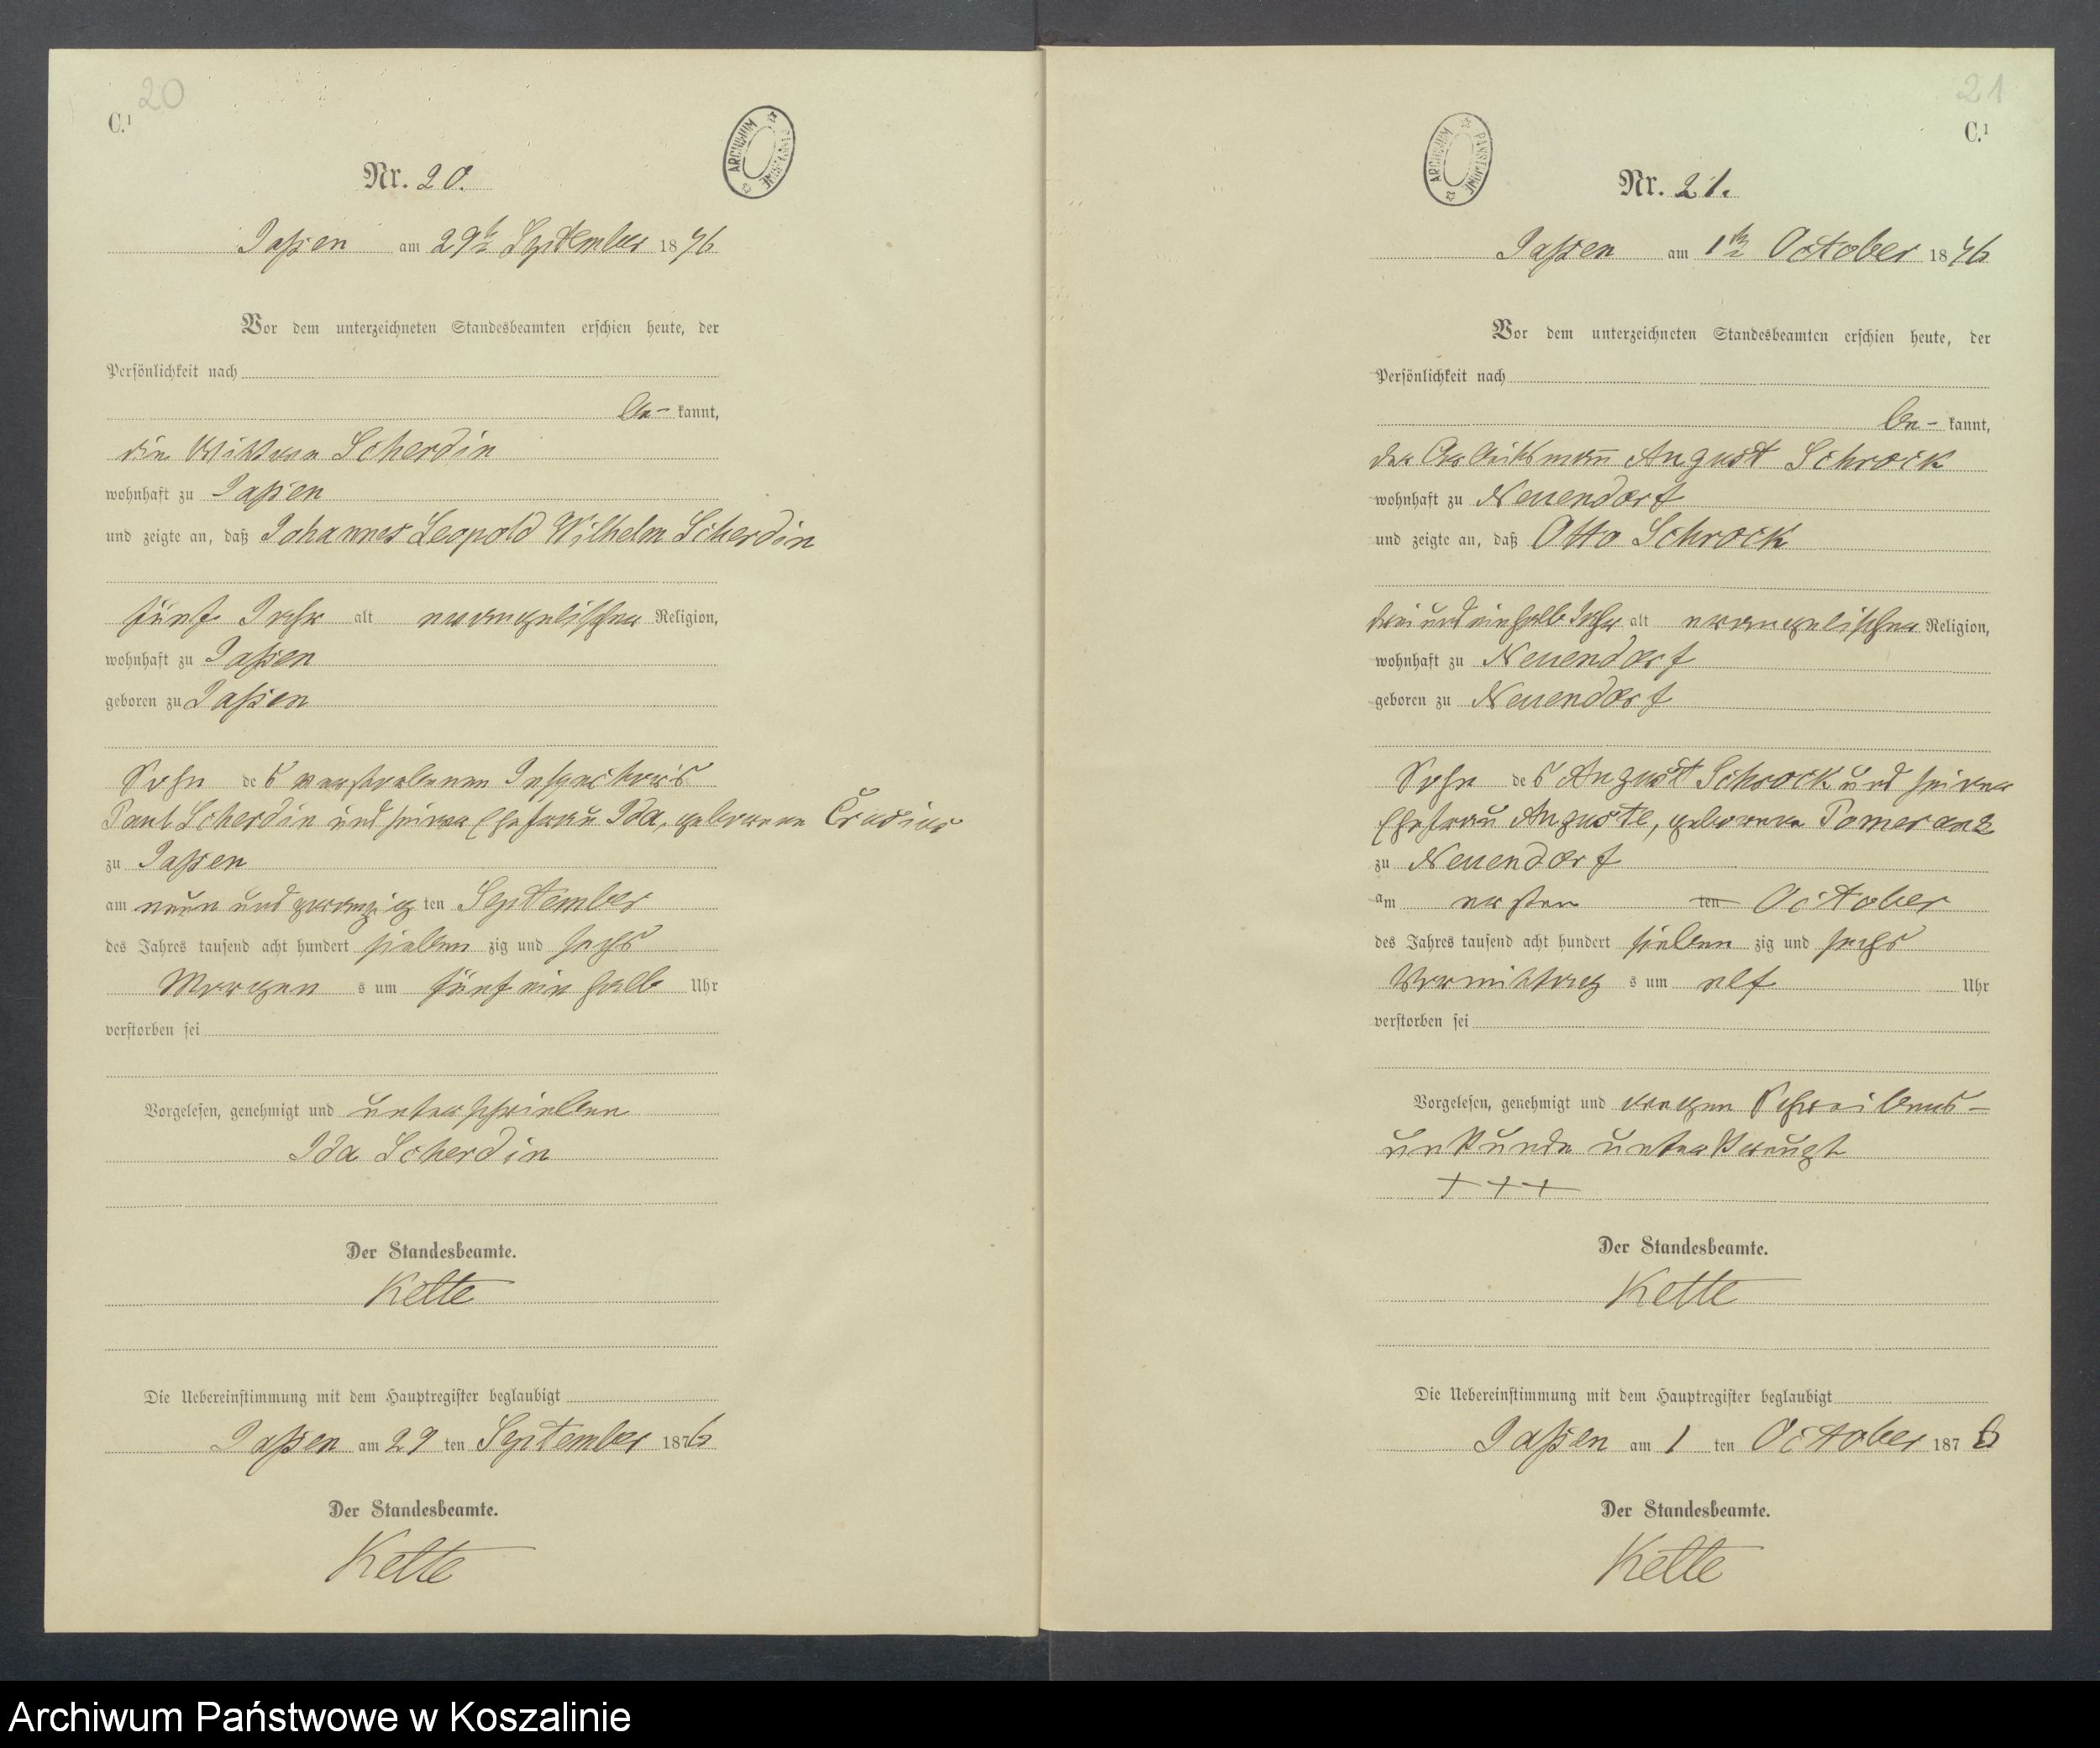 20
C.¹
ARCHIWUM PAŃSTWOWE
Nr. 20.
Jaßen am 29ten September 1876
Vor dem unterzeichneten Standesbeamten erschien heute, der
Persönlichkeit nach
be- kannt,
die Wittwe Scherdin
wohnhaft zu Jaßen
und zeigte an, daß Johannes Leopold Wilhelm Scherdin
fünf Jahr alt evangelischer Religion,
wohnhaft zu Jaßen
geboren zu Jaßen
Sohn des verstorbenen Inspectors
Paul Scherdin und seiner Ehefrau Ida, geborene
zu Jaßen
am neun und zwanzig ten September
des Jahres tausend acht hundert sieben zig und sechs
Morgen s um fünf ein halb Uhr
verstorben sei
Vorgelesen, genehmigt und unterschrieben
Ida Scherdin
Der Standesbeamte.
Kette
Die Uebereinstimmung mit dem Hauptregister beglaubigt
Jaßen am 29 ten September 1876
Der Standesbeamte.
Kette
21
C.¹
ARCHIWUM PAŃSTWOWE
Nr. 21.
Jaßen am 1ten October 1876
Vor dem unterzeichneten Standesbeamten erschien heute, der
Persönlichkeit nach
be- kannt,
der Arbeitsmann August Schrock
wohnhaft zu Neuendorf
und zeigte an, daß Otto Schrock
drei und ein halb Jahr alt evangelischer Religion,
wohnhaft zu Neuendorf
geboren zu Neuendorf
Sohn des August Schrock und seiner
Ehefrau Auguste, geborene Pomerenk
zu Neuendorf
am ersten ten October
des Jahres tausend acht hundert sieben zig und sechs
Vormittag s um elf Uhr
verstorben sei
Vorgelesen, genehmigt und wegen Schreibens-
unkunde unterkreuzt
+++
Der Standesbeamte.
Kette
Die Uebereinstimmung mit dem Hauptregister beglaubigt
Jaßen am 1 ten October 1876
Der Standesbeamte.
Kette
Archiwum Państwowe w Koszalinie